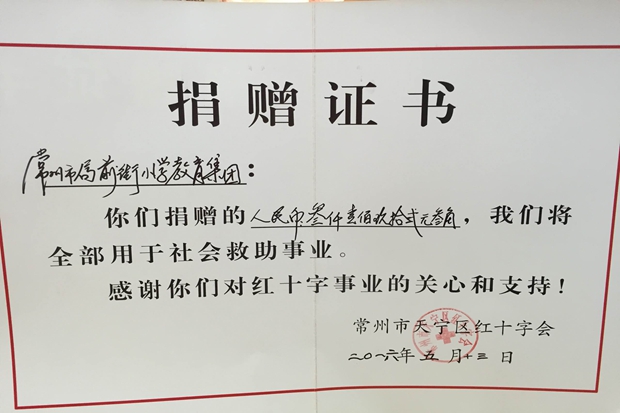 捐赠证书
常州市局前街小学教育集团：
你们捐赠的人民币叁仟壹佰玖拾贰元叁角，我们将
全部用于社会救助事业。
感谢你们对红十字事业的关心和支持！
常州市天宁区红十字会
二〇一六年五月十三日